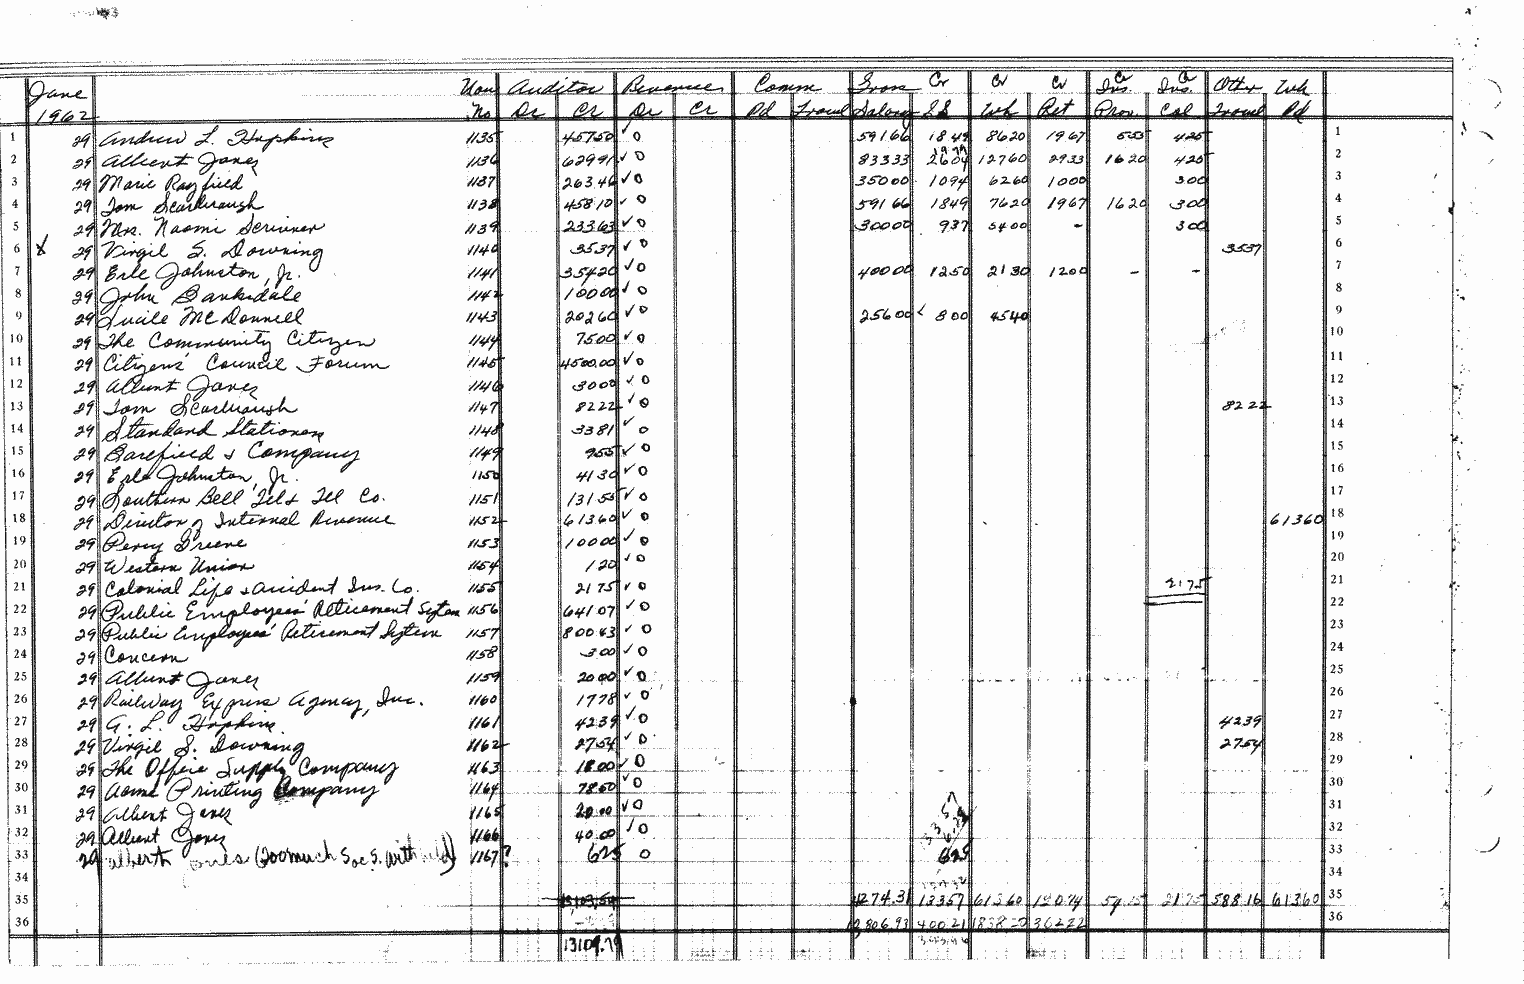 June Vou Auditor Revenue Comm Gross Cr Cr Cr Cr Ins. Cr Ins. Other Wh
1962 No Dr Cr Dr Cr Pd Travel Salary S.S. Wh Ret Prov. Col Travel Pd
1 29 Andrew L. Hopkins 1135 457 50 ✓ 0 591 66 18 49 86 20 19 67 5 55 4 25 1
2 29 Albert Jones 1136 629 91 ✓ 0 833 33 26 04 19 79 127 60 29 33 16 20 4 25 2
3 29 Marie Rayfield 1137 263 46 ✓ 0 350 00 10 94 62 60 10 00 3 00 3
4 29 Tom Scarbrough 1138 458 10 ✓ 0 591 66 18 49 76 20 19 67 16 20 3 00 4
5 29 Mrs. Naomi Scrivner 1139 233 63 ✓ 0 300 00 9 37 54 00 - 3 00 5
6 X 29 Virgil S. Downing 1140 35 37 ✓ 0 35 37 6
7 29 Erle Johnston, Jr. 1141 354 20 ✓ 0 400 00 12 50 21 30 12 00 - - 7
8 29 John Barksdale 1142 100 00 ✓ 0 8
9 29 Lucile McDonnell 1143 202 60 ✓ 0 256 00 ✓ 8 00 45 40 9
10 29 The Community Citizen 1144 75 00 ✓ 0 10
11 29 Citizens' Council Forum 1145 4500.00 ✓ 0 11
12 29 Albert Jones 1146 30 00 ✓ 0 12
13 29 Tom Scarbrough 1147 82 22 ✓ 0 82 22 13
14 29 Standard Stationers 1148 33 81 ✓ 0 14
15 29 Barefield & Company 1149 9 55 ✓ 0 15
16 29 Erle Johnston, Jr. 1150 41 30 ✓ 0 16
17 29 Southern Bell Tel & Tel Co. 1151 131 55 ✓ 0 17
18 29 Director of Internal Revenue 1152 613 60 ✓ 0 613 60 18
19 29 Percy Greene 1153 100 00 ✓ 0 19
20 29 Western Union 1154 1 20 ✓ 0 20
21 29 Colonial Life & Accident Ins. Co. 1155 21 75 ✓ 0 21 75 21
22 29 Public Employees' Retirement System 1156 641 07 ✓ 0 22
23 29 Public Employees' Retirement System 1157 800 43 ✓ 0 23
24 29 Concern 1158 3 00 ✓ 0 24
25 29 Albert Jones 1159 20 00 ✓ 0 25
26 29 Railway Express Agency, Inc. 1160 17 78 ✓ 0 26
27 29 A. L. Hopkins 1161 42 39 ✓ 0 42 39 27
28 29 Virgil S. Downing 1162 27 54 ✓ 0 27 54 28
29 29 The Office Supply Company 1163 18 00 ✓ 0 29
30 29 Acme Printing Company 1164 78 50 ✓ 0 30
31 29 Albert Jones 1165 20.00 ✓ 0 31
32 29 Albert Jones 1166 40.00 ✓ 0 133 57 6.25 32
33 29 Alberta Jones (Too much Soc S. withheld) 1167? 6 25 0 6 25 33
34 34
35 13103.54 4274.31 133 57 613 60 120 74 59 15 21 75 588.16 613 60 35
36 12806.93 400.21 1838 20 362 22 36
13109.79